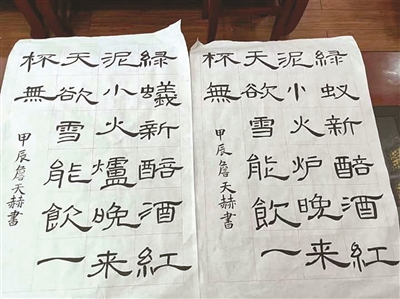 緑蚁新醅酒紅
泥小火炉晚来
天欲雪能飲一
杯無
甲辰詹天赫書
緑蟻新醅酒紅
泥小火爐晚来
天欲雪能飲一
杯無
甲辰詹天赫書